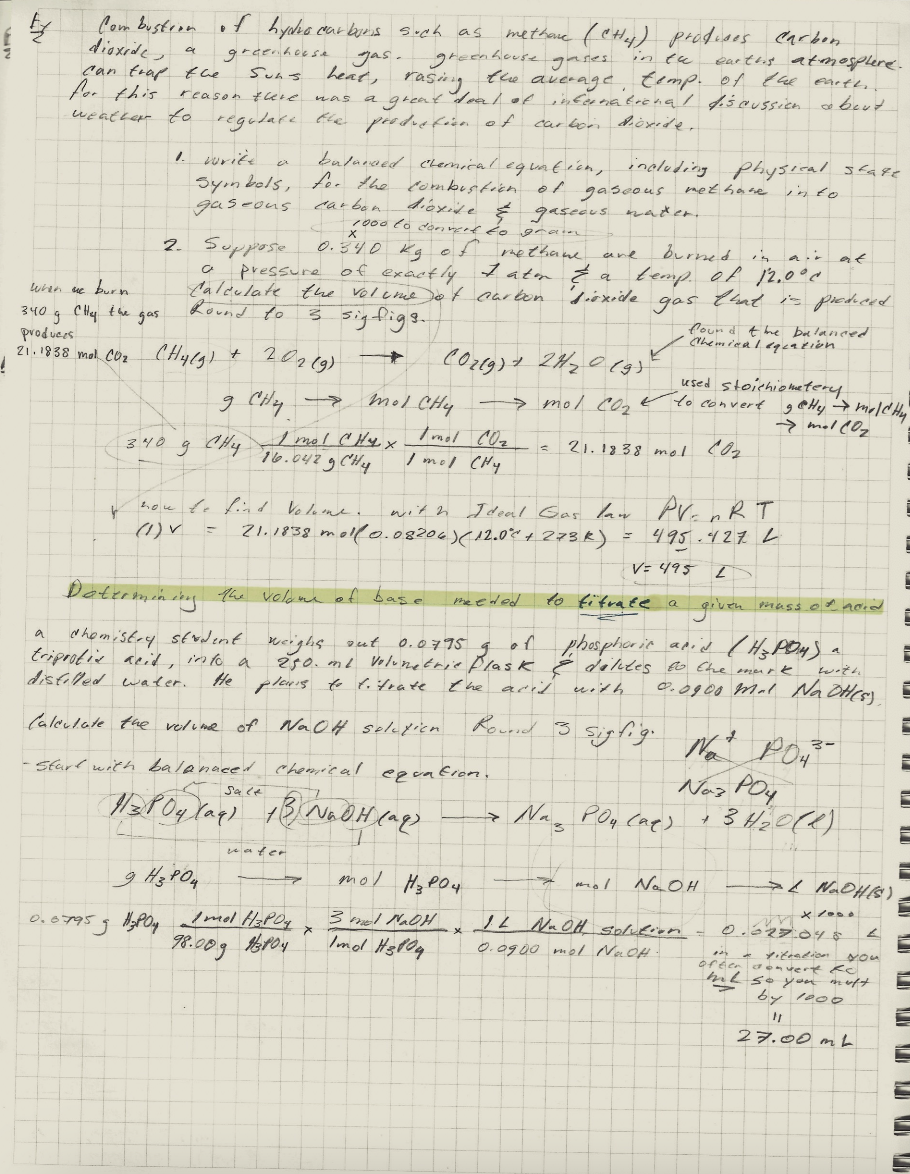 Ex 2
Combustion of hydrocarbons such as methane (CH₄) produces carbon
dioxide, a greenhouse gas. greenhouse gases in the earths atmosphere
can trap the Sun-s heat, rasing the average temp. of the earth.
for this reason there was a great deal of international discussion about
weather to regulate the production of carbon dioxide.
1. write a balanced chemical equation, including physical state
symbols, for the combustion of gaseous methane into
gaseous carbon dioxide & gaseous water.
x 1000 to convert to gram
2. Suppose 0.340 Kg of methane are burned in air at
a pressure of exactly 1 atm & a temp. of 12.0°c
Calculate the volume of carbon dioxide gas that is produced
Round to 3 sigfigs.
when we burn
340 g CH₄ the gas
produces
21.1838 mol CO₂
CH₄(g) + 2O₂(g) → CO₂(g) + 2H₂O(g)
found the balanced
chemical eqcation
g CH₄ → mol CH₄ → mol CO₂
used stoichiometery
to convert g CH₄ → mol CH₄
→ mol CO₂
340 g CH₄ 1 mol CH₄ / 16.042 g CH₄ x 1 mol CO₂ / 1 mol CH₄ = 21.1838 mol CO₂
now to find Volume. with Ideal Gas law PV=nRT
(1)V = 21.1838 mol(0.08206)(12.0°c + 273K) = 495.427 L
V=495 L
Determining the volume of base needed to titrate a given mass of acid
a chemistry student weighs out 0.0795 g of phosphoric acid (H₃PO₄) a
triprotic acid, into a 250. mL Volumetric flask & dilutes to the mark with
distilled water. He plans to titrate the acid with 0.0900 mol NaOH(s).
Calculate the volume of NaOH solution Round 3 sigfig.
Na⁺ PO₄³⁻
Na₃PO₄
- start with balanaced chemical equation.
salt
H₃PO₄(aq) + 3 NaOH(aq) → Na₃PO₄(aq) + 3H₂O(l)
water
g H₃PO₄ → mol H₃PO₄ → mol NaOH → L NaOH(s)
0.0795 g H₃PO₄ 1 mol H₃PO₄ / 98.00g H₃PO₄ x 3 mol NaOH / 1mol H₃PO₄ x 1 L NaOH solution / 0.0900 mol NaOH = 0.027045 L
x 1000
in a titration you
often convert to
mL so you mult
by 1000
=
27.00 mL